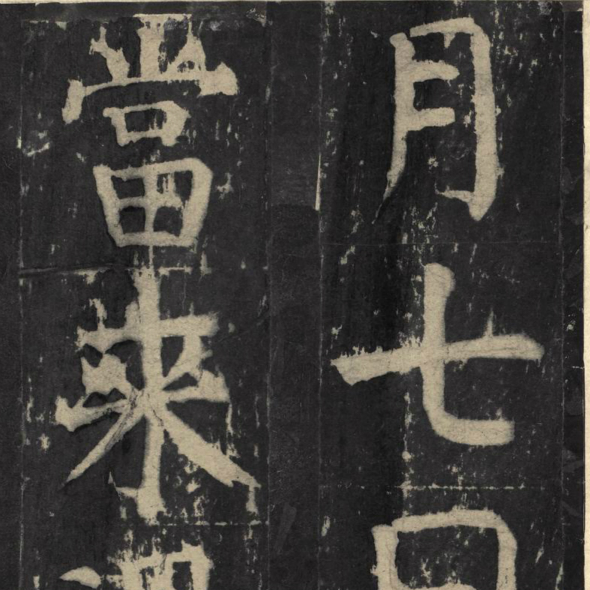 月七日
當來